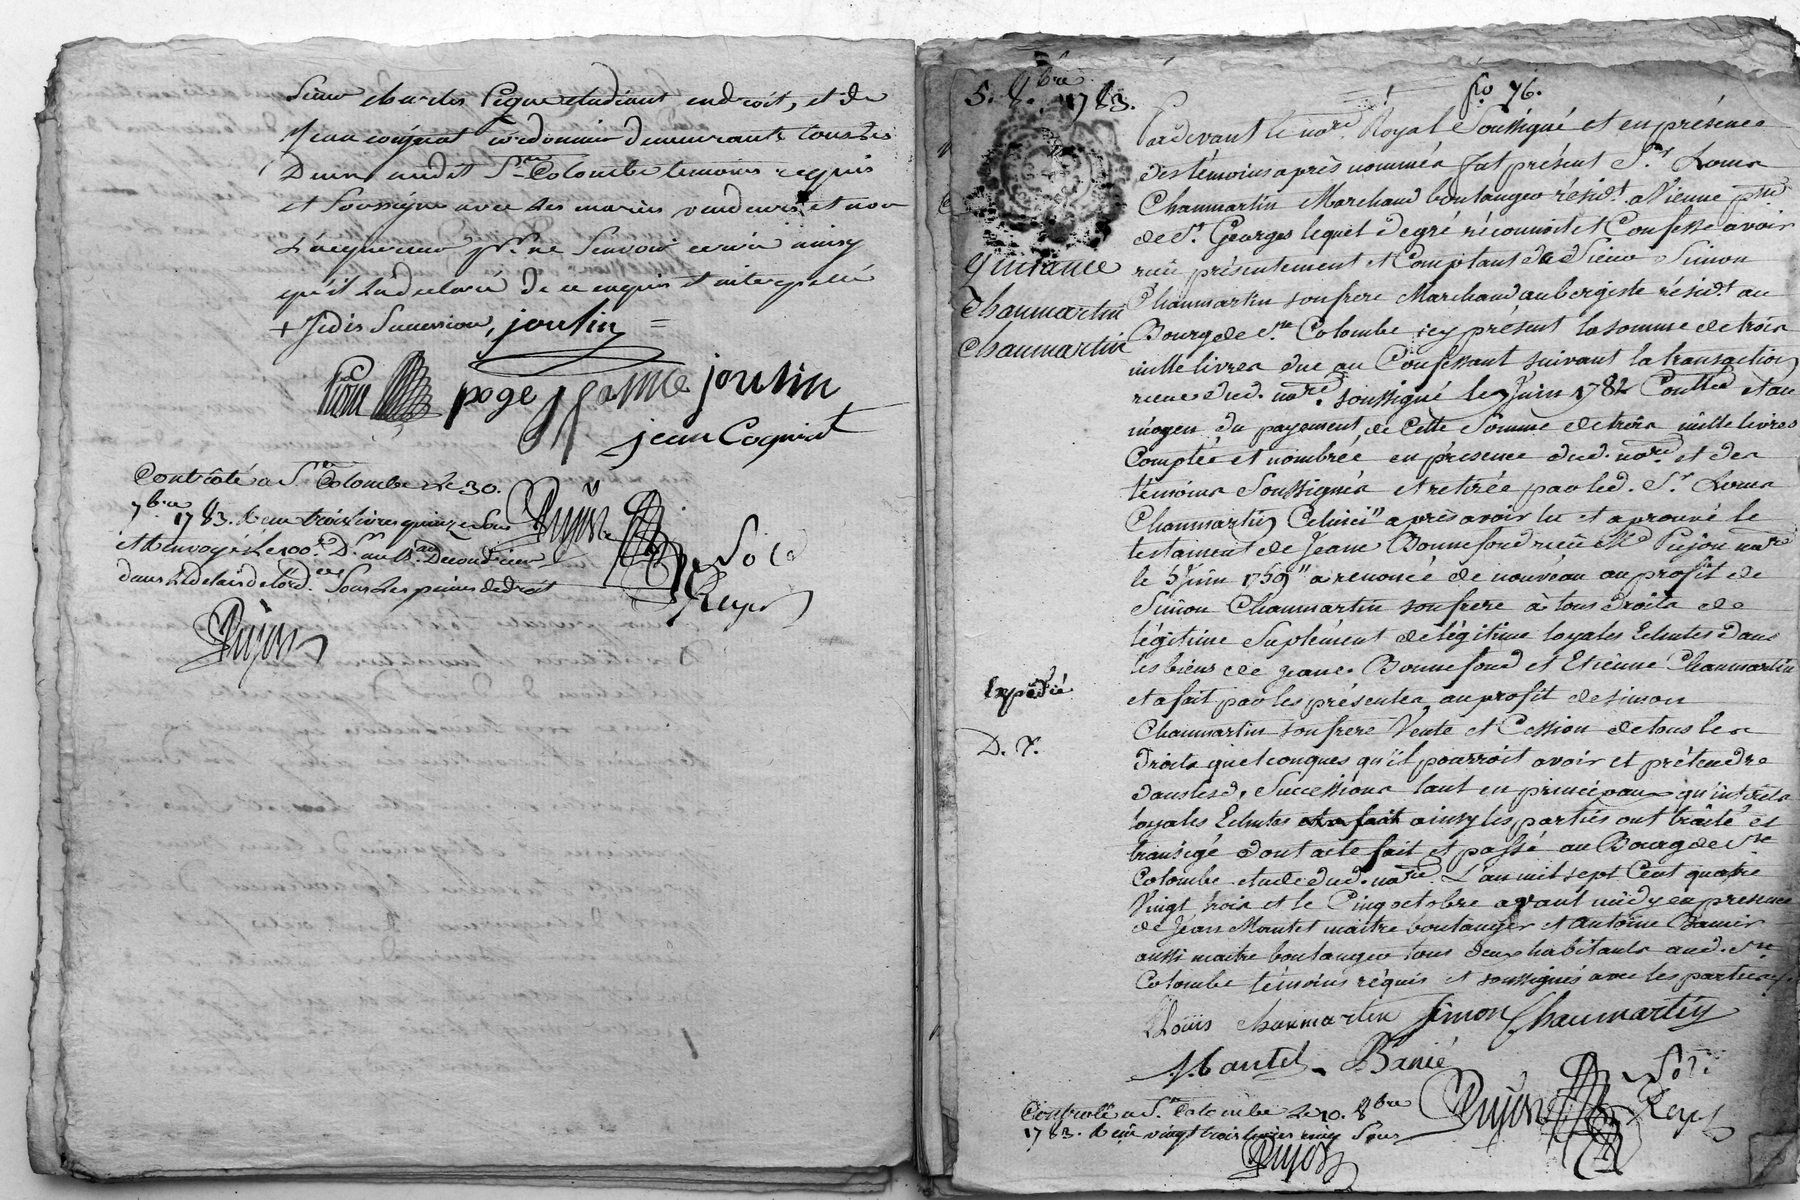 Sieur charles Pique etudiant en droit, et de
Jean coignat cordonnier demeurants tous les
Deux audit Ste Colombe temoins requis
et Soussignes avec les mariés vendeurs et non
L'acquereur pr. ne Scavoir ecrire ainsy
qu'il L'a declaré de ce enquis et interpellé
+ Jedis Succession, joulin =
poge joulin
jean Cogniat
Controlé a Ste Colombe Le 30.
7bre 1783. Reçu trois livres quinze Sous
et Renvoyé Le 100e. Dr. au Bau De
dans Le delais de Lordce Sous Les peines de droit
Pujon
Pujon
Nore
Royal
5. 8bre 1783.
fo 76.
Quittance
Chaumartin
Chaumartin
Expédié
D. X.
Pardevant le nore Royal Soussigné et en présence
des témoins après nommés fut présent Sr Louis
Chaumartin Marchand boulanger résidt. a Vienne psse
de St. Georges lequel de gré réconnoit et Confesse avoir
reçu présentement et Comptant de Sieur Simon
Chaumartin son frere Marchand aubergiste résidt au
Bourg de Ste Colombe icy présent la somme de trois
mille livres due au Confessant suivant la transaction
recue dud. nore. soussigné le Juin 1782 Contllé et au
moyen du payement de Cette Somme de trois mille livres
Comptée et nombrée en présence dud. nore. et des
témoins Soussignés et retirée par led. Sr Louis
Chaumartin Celuici" après avoir lu et aprouvé le
testament de Jeane Bonnefond reçu Me Pujon nore
le 5 Juin 1759" a renoncé de nouveau au profit de
Simon Chaumartin son frere à tous droits de
légitime Suplément de légitime loyales Echutes dans
les biens de Jeane Bonnefond et Etiènne Chaumartin
et a fait par les présentes au profit de simon
Chaumartin son frere Vente et Cession de tous les
droits quelconques qu'il pourroit avoir et prétendre
dans lesd. Successions tant en principaux qu'intérets
loyales Echutes ainsy les parties ont traité et
transigé dont acte fait et passé au Bourg de Ste
Colombe etude dud. nore. L'an mil sept Cent quatre
Vingt trois et le Cinq octobre avant midy en presence
de Jean Mantel maitre boulanger et Antoine Banier
aussi maitre boulanger tous deux habitants aud. Ste
Colombe témoins réquis et soussignés avec les parties
Louis chaumartin Simon Chaumartin
J. Mantel Banié
Controlé a Ste Colombe Le 10. 8bre
1783. Reçu vingt trois livres cinq Sous
Pujon
Pujon
Nore
Royal